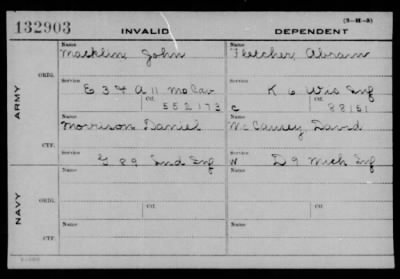 (3-M-5)
132903 INVALID DEPENDENT
ARMY
ORIG.
Name Macklin John
Name Fletcher Abram
Service E 3 & A 11 Mo Cav
Service K 6 Wis Inf
Ctf. 552173
C 88151
CTF.
Name Morrison Daniel
Name McCauley David
Service G 89 Ind Inf
Service W D 9 Mich Inf
NAVY
ORIG.
Name Ctf.
Name Ctf.
CTF.
Name
Name